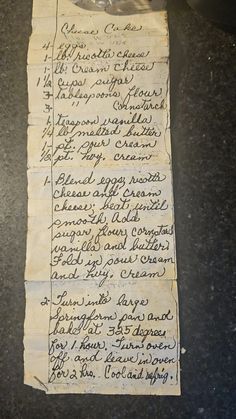 Cheese Cake
4- eggs
1- lb. ricotta cheese
1- lb. Cream cheese
1 1/2 cups sugar
3- tablespoons flour
3- " Cornstarch
1- teaspoon vanilla
1/4 lb. melted butter
1- pt. sour cream
1/2 pt. hvy. cream
1- Blend eggs, ricotta
cheese and cream
cheese; beat until
smooth. Add
sugar, flour, cornstarch
vanilla and butter.
Fold in sour cream
and hvy. cream
2- Turn into large
Springform pan and
bake at 325 degrees
for 1 hour. Turn oven
off and leave in oven
for 2 hrs. Cool and refrig.